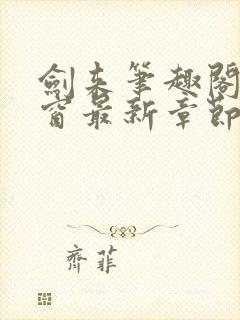 劍來筆趣閣
窗最新章節
齊菲